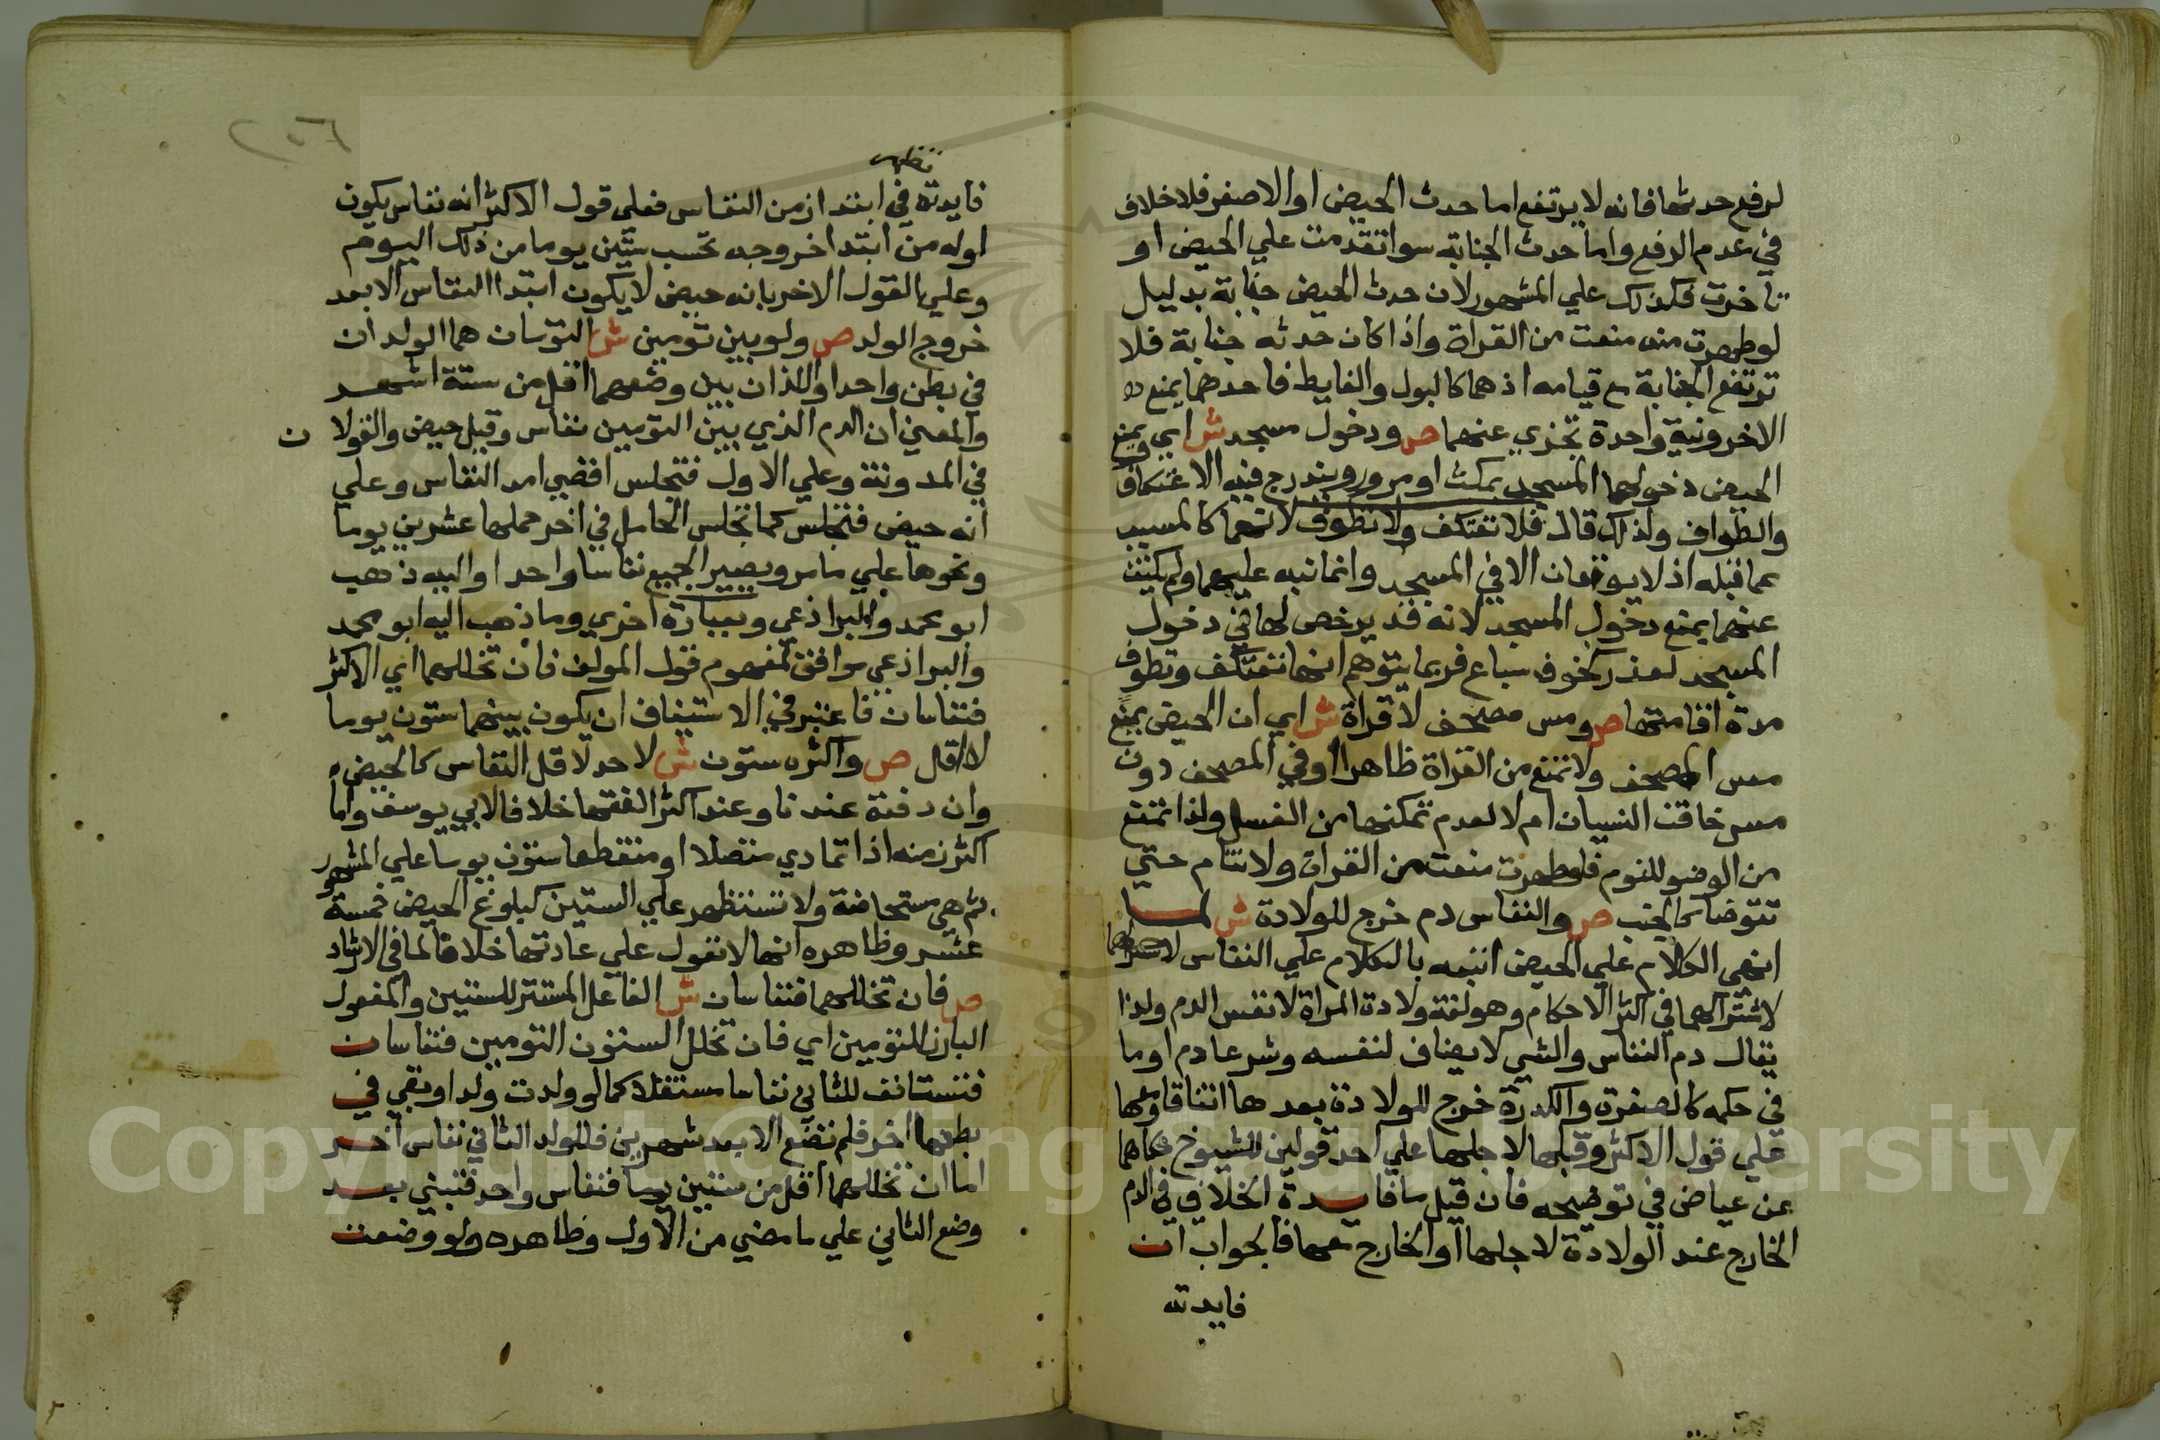 لرفع حدثها فانه لا يرتفع اما حدث الحيض او الاصغر فلا خلاف
في عدم الرفع واما حدث الجنابة سوا تقدمت علي الحيض او
تاخرت فكذلك علي المشهور لان حدث الحيض جنابة بدليل
لو طهرت منه منعت من القراة واذا كان حدثه جنابة فلا
ترتفع الجنابة مع قيامه اذ هما كالبول والغايط فاحدهما يمنع
الاخر ونية واحدة تجزي عنهما ص ودخول مسجد ش اي ويمنع
الحيض دخولها المسجد بمكث او مرور ويندرج فيه الاعتكاف
والطواف ولذلك قال فلا تعتكف ولا تطوف لانهما كالمسبب
عما قبله اذ لا يوقعان الا في المسجد وانما نبه عليهما ولم يكتف
عنهما بمنع دخول المسجد لانه قد يرخص لها في دخول
المسجد لعذر كخوف سباع فربما يتوهم انها تعتكف وتطوف
مدة اقامتها ص ومس مصحف لا قراة ش اي ان الحيض يمنع
مس المصحف ولا تمنع من القراة ظاهرا او في المصحف دون
مس خافت النسيان ام لا لعدم تمكنها من الغسل ولذا تمنع
من الوضو للنوم فلو طهرت منعت من القراة ولا تنام حتي
تتوضا كالجنب ص والنفاس دم خرج للولادة ش لما
انهي الكلام علي الحيض اتبعه بالكلام علي النفاس
لاشتراكهما في اكثر الاحكام وهو لغة ولادة المراة لا نفس الدم ولذا
يقال دم النفاس والشي لا يضاف لنفسه وشرعا دم او ما
في حكمه كالصفرة والكدرة خرج للولادة بعدها اتفاقا ومعها
علي قول الاكثر وقبلها لاجلها علي احد قولين للشيوخ حكاهما
عن عياض في توضيحه فان قيل ما فايدة الخلاف في الدم
الخارج عند الولادة لاجلها او الخارج معها فالجواب ان
فايدته
تظهر
فايدته في ابتدا زمن النفاس فعلي قول الاكثر انه نفاس يكون
اوله من ابتدا خروجه تحسب ستين يوما من ذلك اليوم
وعلي القول الاخر بانه حيض لا يكون ابتدا النفاس الا بعد
خروج الولد ص ولو بين تومين ش التومان هما الولدان
في بطن واحد او اللذان بين وضعهما اقل من ستة اشهر
والمعني ان الدم الذي بين التومين نفاس وقيل حيض والقولان
في المدونة وعلي الاول فتجلس اقصي امد النفاس وعلي
انه حيض فتجلس كما تجلس الحامل في اخر حملها عشرين يوما
ونحوها علي ما مر ويصير الجميع نفاسا واحدا واليه ذهب
ابو محمد والبراذعي وبعبارة اخري وما ذهب اليه ابو محمد
والبراذعي موافق لمفهوم قول المولف فان تخللهما اي الاكثر
فنفاسان فاعتبر في الاستيناف ان يكون بينهما ستون يوما
لا اقل ص واكثره ستون ش لا حد لاقل النفاس كالحيض
وان دفعة عندنا وعند اكثر الفقها خلافا لابي يوسف واما
اكثر زمنه اذا تمادي متصلا او منقطعا ستون يوما علي المشهور
ثم هي مستحاضة ولا تستظهر علي الستين كبلوغ الحيض خمسة
عشر وظاهره انها لا تعول علي عادتها خلافا لما في الارشاد
ص فان تخللهما فنفاسان ش الفاعل المستتر للستين والمفعول
البارز للتومين اي فان تخلل الستون التومين فنفاسان
فتستانف للثاني نفاسا مستقلا كما لو ولدت ولدا وبقي في
بطنها اخر فلم تضع الا بعد شهرين فللولد الثاني نفاس اخر
اما ان تخللهما اقل من ستين يوما فنفاس واحد فتبني بعد
وضع الثاني علي ما مضي من الاول وظاهره ولو وضعت
Copyright © King Saud University